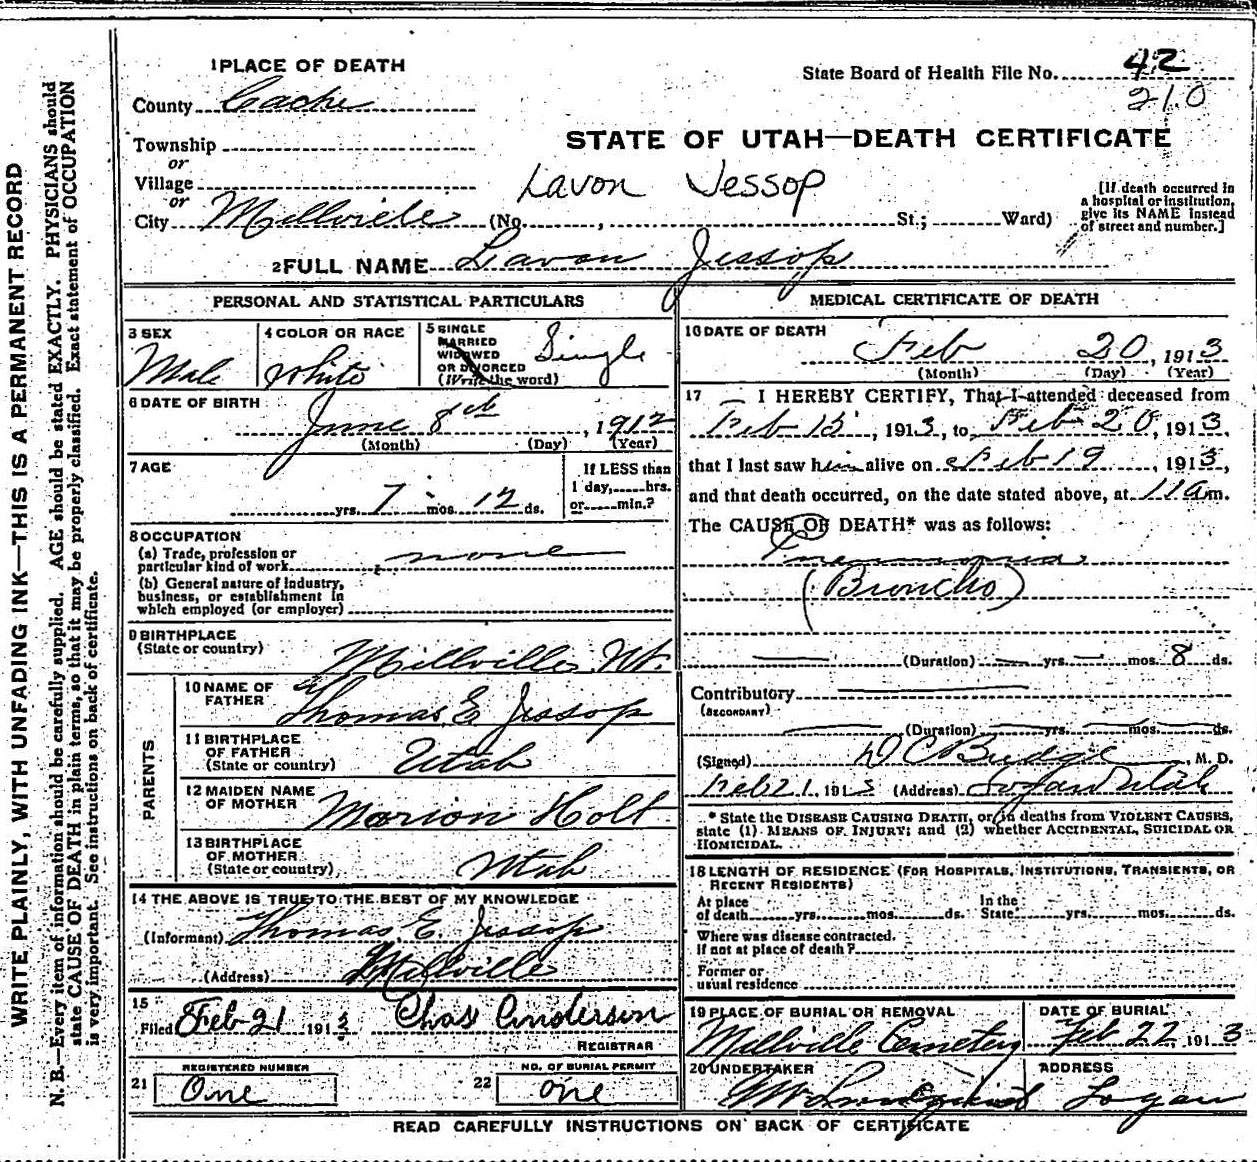 WRITE PLAINLY, WITH UNFADING INK—THIS IS A PERMANENT RECORD
N. B.—Every item of information should be carefully supplied. AGE should be stated EXACTLY. PHYSICIANS should
state CAUSE OF DEATH in plain terms, so that it may be properly classified. Exact statement of OCCUPATION
is very important. See instructions on back of certificate.
1 PLACE OF DEATH
State Board of Health File No. 42
210
County Cache
STATE OF UTAH—DEATH CERTIFICATE
Township
or
Village
Lavon Jessop
or
City Millville (No. , St.; Ward)
[If death occurred in
a hospital or institution,
give its NAME instead
of street and number.]
2 FULL NAME Lavon Jessop
PERSONAL AND STATISTICAL PARTICULARS
3 SEX
Male
4 COLOR OR RACE
White
5 SINGLE
MARRIED
WIDOWED
OR DIVORCED
(Write the word)
Single
6 DATE OF BIRTH
June 8th , 1912
(Month) (Day) (Year)
7 AGE
yrs. 7 mos. 12 ds.
If LESS than
1 day, hrs.
or min.?
8 OCCUPATION
(a) Trade, profession or
particular kind of work none
(b) General nature of industry,
business, or establishment in
which employed (or employer)
9 BIRTHPLACE
(State or country)
Millville, Ut.
PARENTS
10 NAME OF
FATHER
Thomas E Jessop
11 BIRTHPLACE
OF FATHER
(State or country)
Utah
12 MAIDEN NAME
OF MOTHER
Marion Holt
13 BIRTHPLACE
OF MOTHER
(State or country)
Utah
14 THE ABOVE IS TRUE TO THE BEST OF MY KNOWLEDGE
(Informant) Thomas E. Jessop
(Address) Millville
15
Filed Feb 21 1913 Chas Anderson
REGISTRAR
REGISTERED NUMBER
21 One
NO. OF BURIAL PERMIT
22 one
MEDICAL CERTIFICATE OF DEATH
16 DATE OF DEATH
Feb 20, 1913
(Month) (Day) (Year)
17 I HEREBY CERTIFY, That I attended deceased from
Feb 13, 1913, to Feb 20, 1913,
that I last saw him alive on Feb 19, 1913,
and that death occurred, on the date stated above, at 11 am.
The CAUSE OF DEATH* was as follows:
Pneumonia
(Broncho)
(Duration) yrs. mos. 8 ds.
Contributory
(SECONDARY)
(Duration) yrs. mos. ds.
(Signed) D C Budge, M. D.
Feb 21, 1913 (Address) Logan Utah
* State the DISEASE CAUSING DEATH, or in deaths from VIOLENT CAUSES,
state (1) MEANS OF INJURY; and (2) whether ACCIDENTAL, SUICIDAL OR
HOMICIDAL.
18 LENGTH OF RESIDENCE (FOR HOSPITALS, INSTITUTIONS, TRANSIENTS, OR
RECENT RESIDENTS)
At place
of death yrs. mos. ds.
In the
State yrs. mos. ds.
Where was disease contracted.
If not at place of death?
Former or
usual residence
19 PLACE OF BURIAL OR REMOVAL
Millville Cemetery
DATE OF BURIAL
Feb 22, 1913
20 UNDERTAKER
Lindquist
ADDRESS
Logan
READ CAREFULLY INSTRUCTIONS ON BACK OF CERTIFICATE